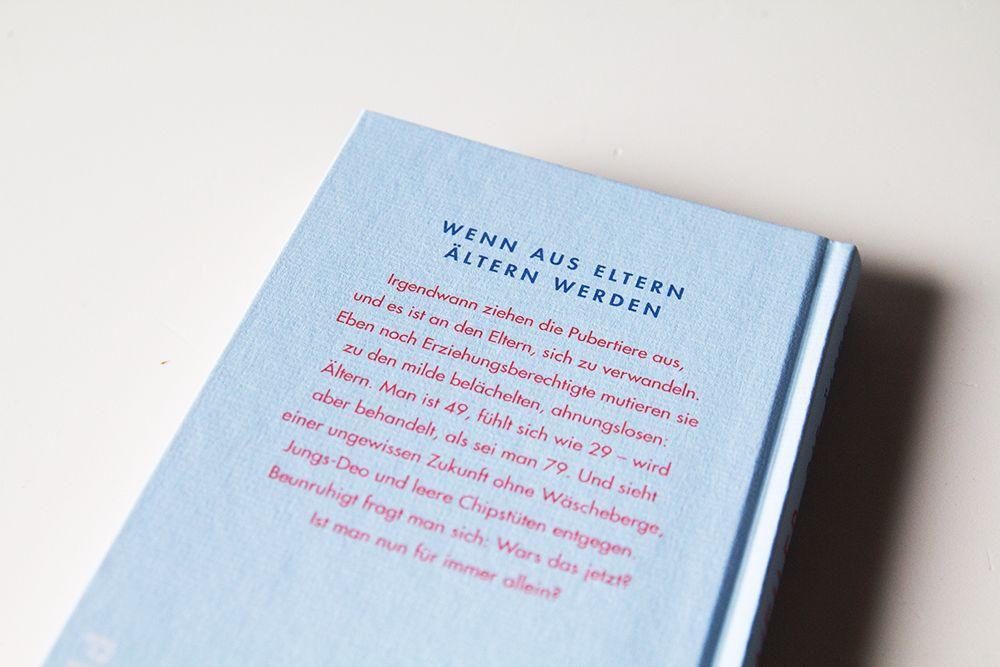 WENN AUS ELTERN
ÄLTERN WERDEN
Irgendwann ziehen die Pubertiere aus,
und es ist an den Eltern, sich zu verwandeln.
Eben noch Erziehungsberechtigte mutieren sie
zu den milde belächelten, ahnungslosen:
Ältern. Man ist 49, fühlt sich wie 29 – wird
aber behandelt, als sei man 79. Und sieht
einer ungewissen Zukunft ohne Wäscheberge,
Jungs-Deo und leere Chipstüten entgegen.
Beunruhigt fragt man sich: Wars das jetzt?
Ist man nun für immer allein?